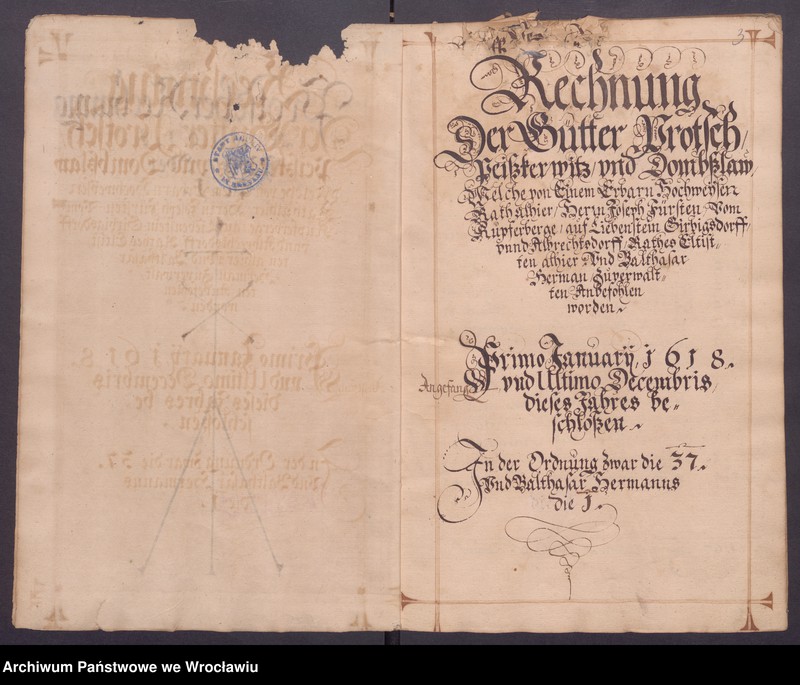 3
Rechnung
Der Gütter Protsch/
Peißkerwitz/ vnd Dombßlaw/
Welche von Einem Erbarn Hochweysen
Rath alhier/ Herrn Joseph Fürsten/ Vom
Kupferberge/ auf Liebenstein Girbigsdorff/
vnnd Albrechtsdorff/ Rathes Eltist-
ten alhier Vnd Balthasar
Herman/ Zuverwalt-
ten Anbefohlen
worden.
Primo January, 1618.
Angefangen/ vnd Ultimo Decembris/
dieses Jahres be-
schloßen.
In der Ordnung zwar die 37.
Vnd Balthasar Hermanns
die 1.
Archiwum Państwowe we Wrocławiu